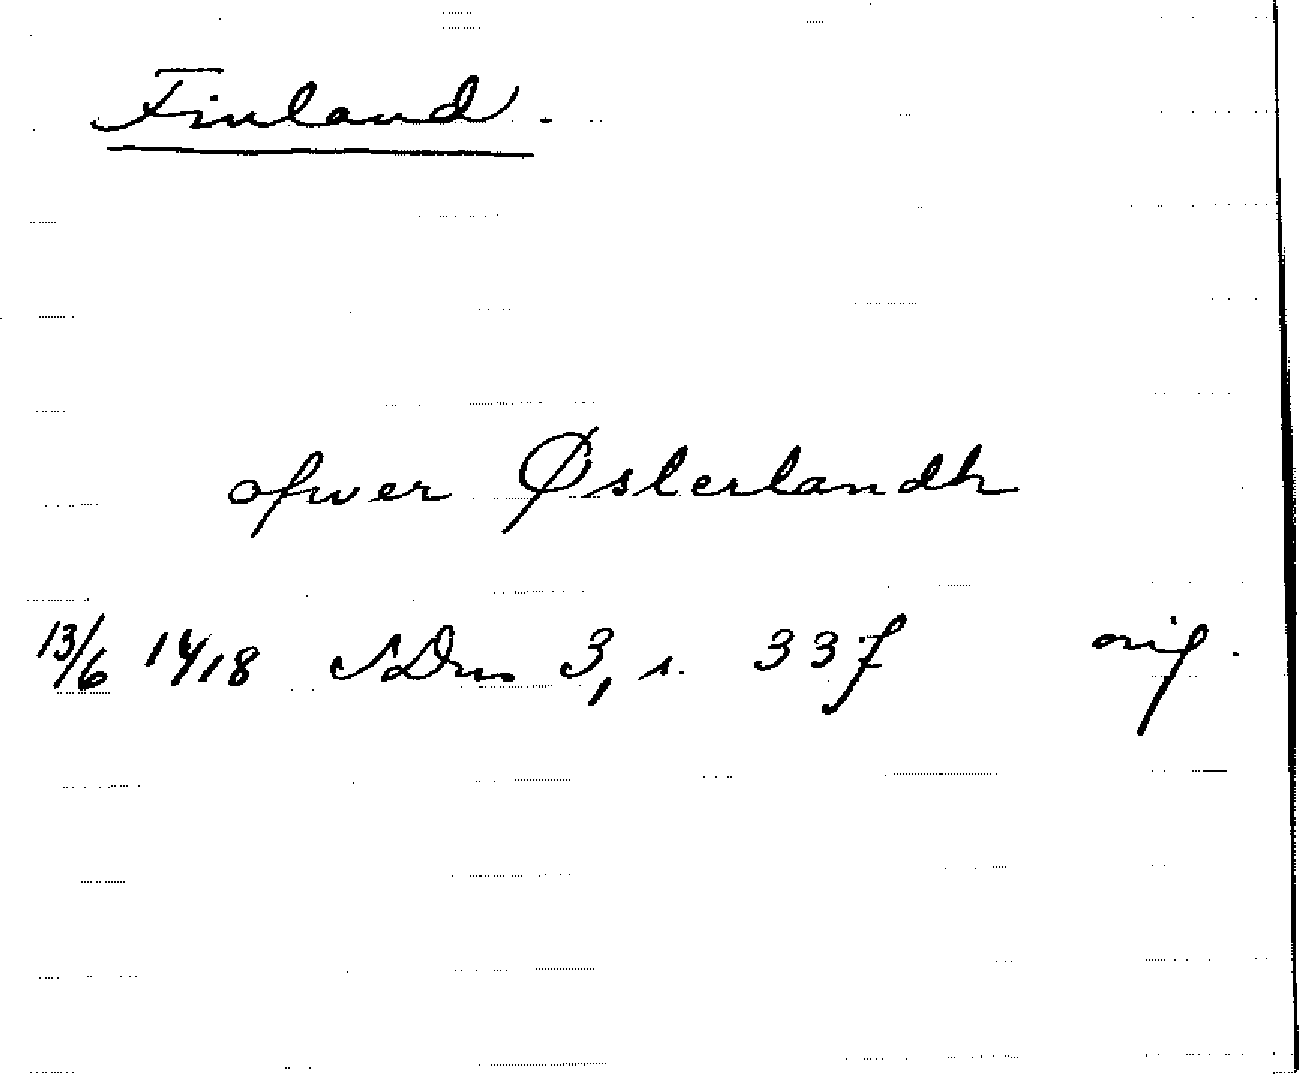 Finland.
ofwer Østerlandh
13/6 1418 SDns 3, s. 33f orig.